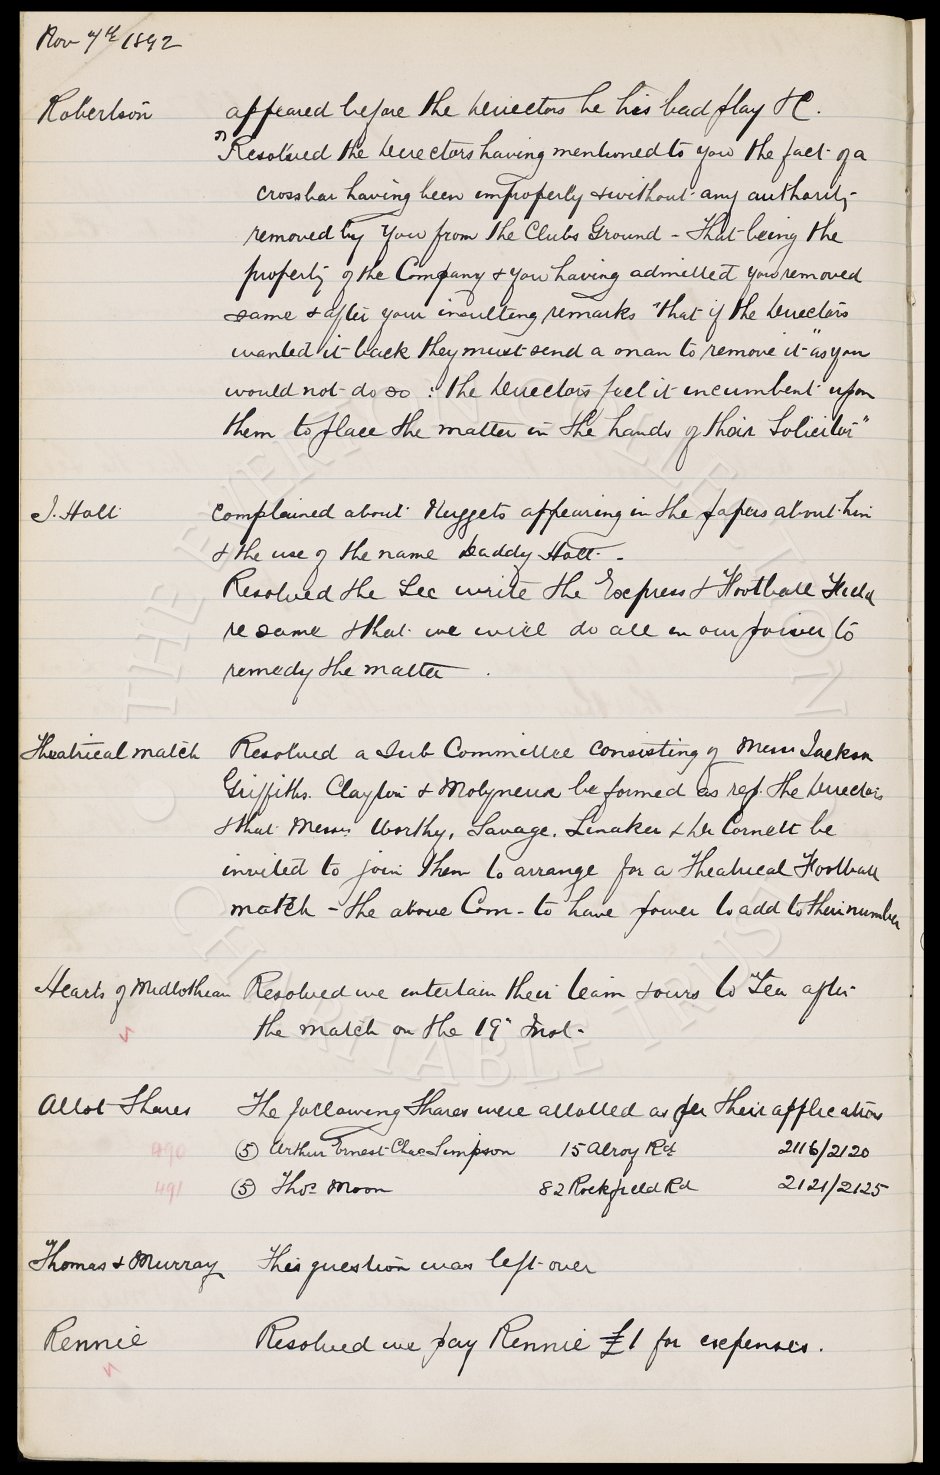 Nov 7th 1892
Robertson appeared before the Directors re his bad play &c.
Resolved the Directors having mentioned to you the fact of a
crossbar having been improperly & without any authority
removed by you from the Clubs Ground - That being the
property of the Company & you having admitted you removed
same & after your insulting remarks "that if the Directors
wanted it back they must send a man to remove it" as you
would not do so : the Directors feel it incumbent upon
them to place the matter in the hands of their Solicitor"
J. Holt complained about Nuggets appearing in the papers about him
& the use of the name Daddy Holt -
Resolved the Sec write the Express & Football Field
re same & that we will do all in our power to
remedy the matter.
Theatrical match Resolved a Sub Committee consisting of Messrs Jackson
Griffiths. Clayton & Molyneux be formed as rep. the Directors
& that Messrs Worthy, Savage, Linaker & De Cornett be
invited to join them to arrange for a Theatrical Football
match - the above Com - to have power to add to their number
Hearts of Midlothian Resolved we entertain their team & ours to Tea after
the match on the 19th Inst -
Allot Shares The following Shares were allotted as per their application
490 (5) Arthur Ernest Chas Simpson 15 Alroy Rd 2116/2120
491 (5) Thos Moon 82 Rockfield Rd 2121/2125
Thomas & Murray This question was left over
Rennie Resolved we pay Rennie £1 for expenses.
© THE EVERTON COLLECTION
CHARITABLE TRUST